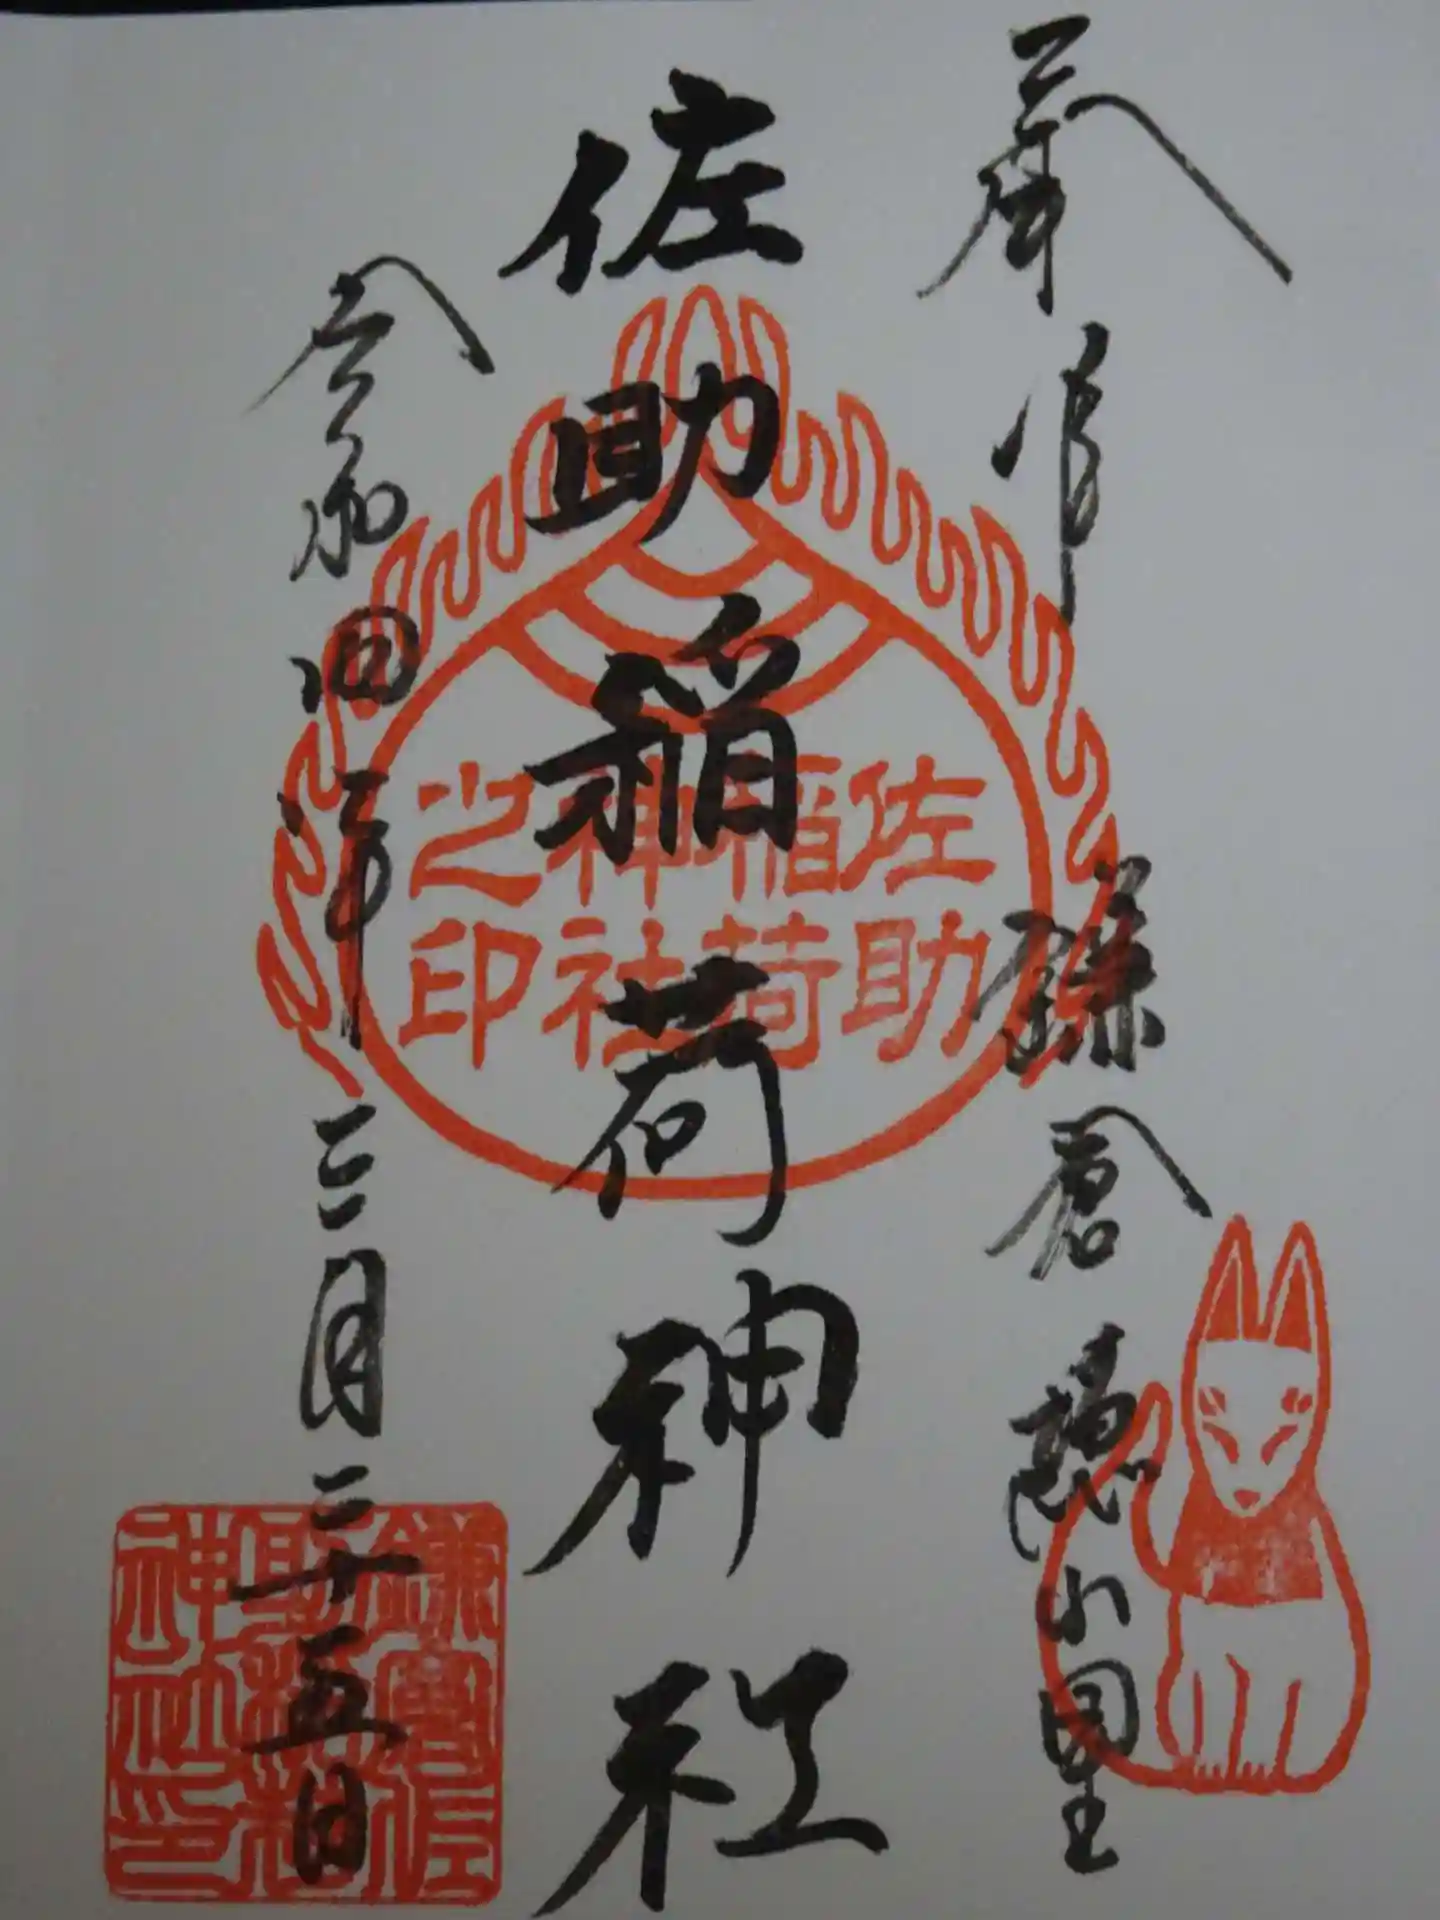 奉拝
鎌倉
佐助稲荷神社
令和四年三月二十五日
佐助
稲荷
神社
之印
鎌倉佐
助稲荷
神社印